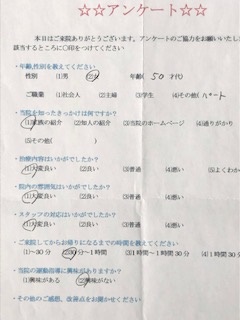 ☆☆アンケート☆☆
本日はご来院ありがとうございます。アンケートのご協力をお願いいたし
該当するところに○印をつけてください
・年齢,性別を教えてください
性別 (1)男 (2)女 年齢( 50 才代)
ご職業 (1)社会人 (2)主婦 (3)学生 (4)その他( パート
・当院を知ったきっかけは何ですか?
(1)家族の紹介 (2)知人の紹介 (3)当院のホームページ (4)通りがかり
(5)その他( )
・治療内容はいかがでしたか?
(1)大変良い (2)良い (3)普通 (4)悪い (5)よくわ
・院内の雰囲気はいかがでしたか?
(1)大変良い (2)良い (3)普通 (4)悪い
・スタッフの対応はいかがでしたか?
(1)大変良い (2)良い (3)普通 (4)悪い
・ご来院してからお帰りになるまでの時間を教えてください
(1)~30分 (2)30分~1時間 (3)1時間~1時間30分 (4)1時間30
・当院の運動指導に興味がありますか?
(1)興味がある (2)興味がない
・その他のご感想、改善点をお聞かせください